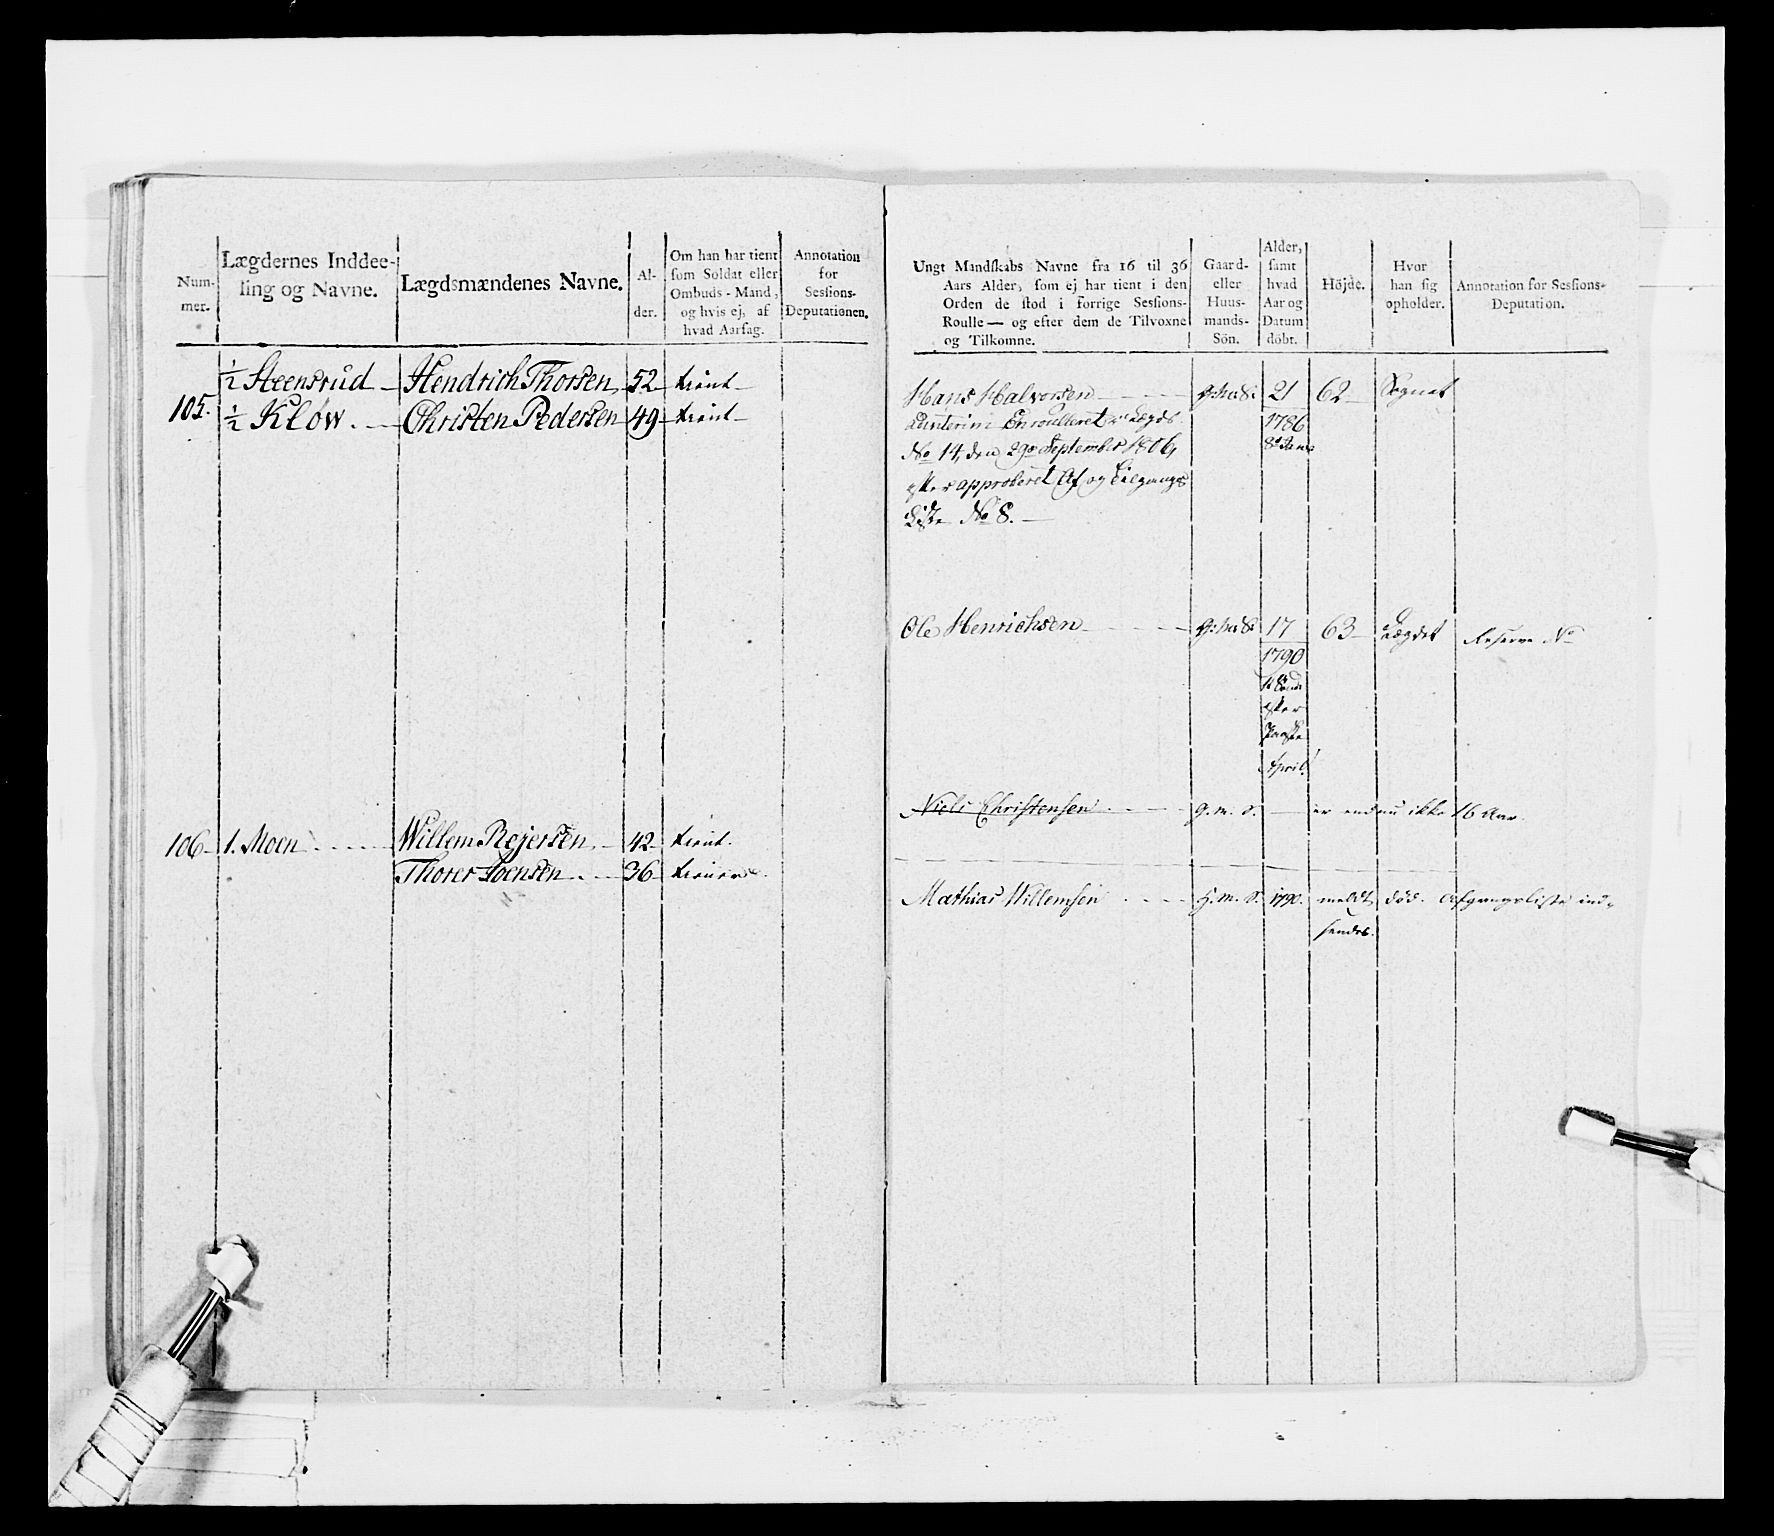 Num-
mer.
Lægdernes Inddee-
ling og Navne.
Lægdsmændenes Navne.
Al-
der.
Om han har tient
som Soldat eller
Ombuds-Mand,
og hvis ej, af
hvad Aarsag.
Annotation
for
Sessions-
Deputationen.
105.
1/2 Steensrud — Hendrich Thorsen 52 — tient —
1/2 Kløw. — Christen Pedersen 49 — tient —
106 — 1. Moen Willem Rejersen 42 tient.
Thorer Joensen 36
Ungt Mandskabs Navne fra 16 til 36
Aars Alder, som ej har tient i den
Orden de stod i forrige Sessions-
Roulle — og efter dem de Tilvoxne
og Tilkomne.
Gaard-
eller
Huus-
mands-
Sön.
Alder,
samt
hvad
Aar og
Datum
döbt.
Höjde.
Hvor
han sig
opholder.
Annotation for Sessions-
Deputation.
Hans Halvorsen 21 62 Sognet
Interim Enroulleret i Lægds
1786
No 14, den 29de September 1806,
efter approberet Af og Tilgangs
Liste No 8. —
Ole Henrichsen 17 63 Lægdet Reserve No
1790
efter
Paaske
April.
Niels Christensen g. m. S. — er endnu ikke 16 Aar.
Mathias Willemsen g. m. S. 1790. meldt død. Afgangsliste ind-
sendes.